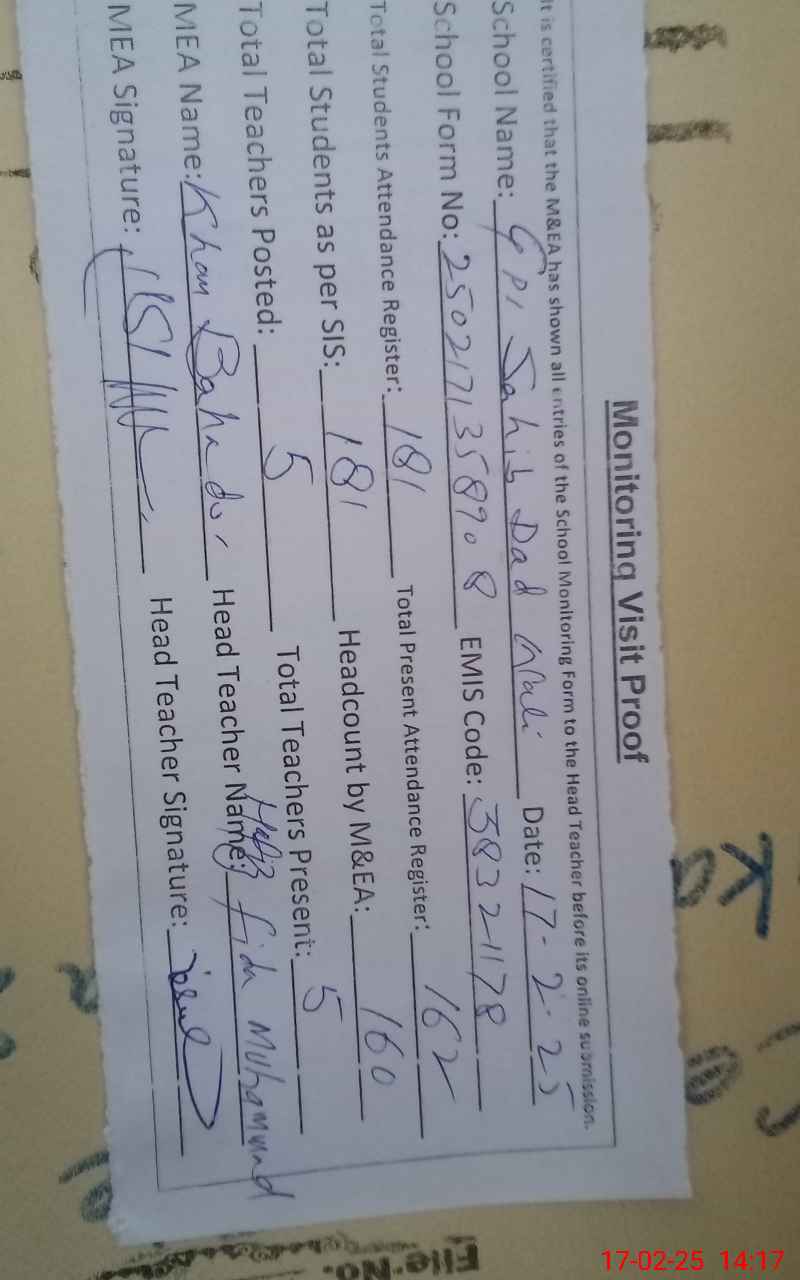 Monitoring Visit Proof
It is certified that the M&EA has shown all entries of the School Monitoring Form to the Head Teacher before its online submission.
School Name: GPS Sahib Dad Wali Date: 17-2-25
School Form No: 250217135890 8 EMIS Code: 38321178
Total Students Attendance Register: 181 Total Present Attendance Register: 162
Total Students as per SIS: 181 Headcount by M&EA: 160
Total Teachers Posted: 5 Total Teachers Present: 5
MEA Name: Khan Bahadur Head Teacher Name: Hafiz fida Muhammad
MEA Signature: Head Teacher Signature:
File No.
17-02-25 14:17